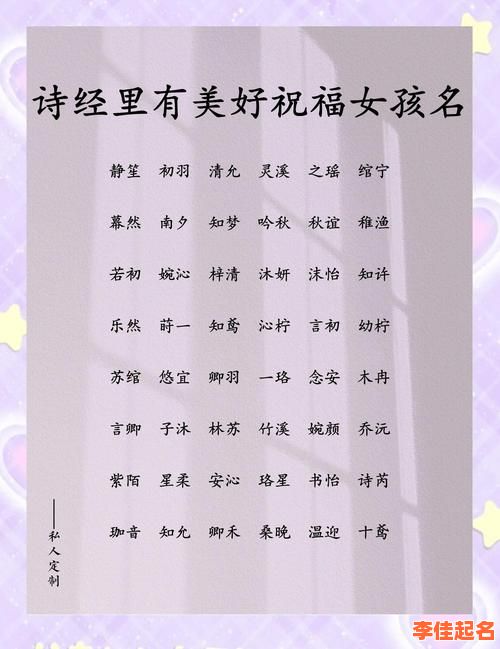 诗经里有美好祝福女孩名
静笙 初羽 清允 灵溪 之瑶 绾宁
幕然 南夕 知梦 吟秋 秋谊 稚渔
若初 婉沁 梓清 沐妍 沫怡 知许
乐然 莳一 知鸢 沁柠 言初 幼柠
苏绾 悠宜 卿羽 一珞 念安 木冉
言卿 子沐 林苏 竹溪 婉颜 乔沅
紫陌 星柔 安沁 珞星 书怡 诗芮
珈音 知允 卿禾 桑晚 温迎 十鸢
——私人定制
李佳起名